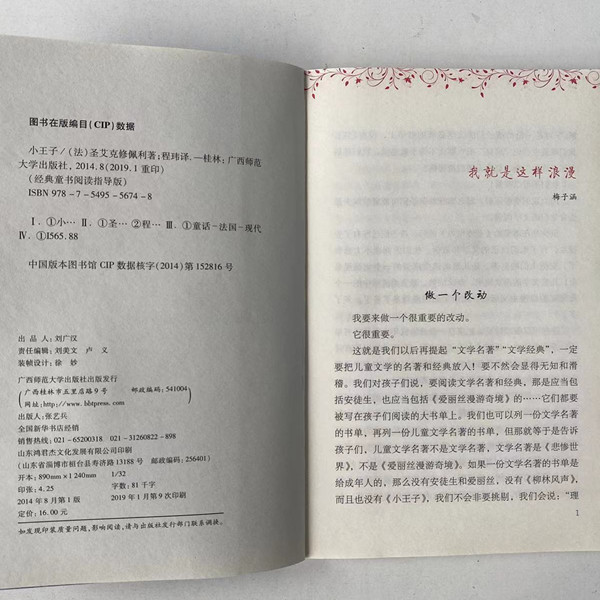 图书在版编目(CIP)数据
小王子/(法)圣艾克修佩利著;程玮译.—桂林:广西师范
大学出版社,2014.8(2019.1重印)
(经典童书阅读指导版)
ISBN 978-7-5495-5674-8
Ⅰ.①小… Ⅱ.①圣… ②程… Ⅲ.①童话-法国-现代
Ⅳ.①I565.88
中国版本图书馆CIP数据核字(2014)第152816号
出 品 人:刘广汉
责任编辑:刘美文 卢 义
装帧设计:徐 妙
广西师范大学出版社出版发行
(广西桂林市五里店路9号 邮政编码:541004
网址:http://www.bbtpress.com)
出版人:张艺兵
全国新华书店经销
销售热线:021-65200318 021-31260822-898
山东鸿君杰文化发展有限公司印刷
(山东省淄博市桓台县寿济路13188号 邮政编码:256401)
开本:890mm×1 240mm 1/32
印张:4.25 字数:81千字
2014年8月第1版 2019年1月第9次印刷
定价:16.00元
如发现印装质量问题,影响阅读,请与出版社发行部门联系调换。
我就是这样浪漫
梅子涵
做一个改动
我要来做一个很重要的改动。
它很重要。
这就是我们以后再提起“文学名著”“文学经典”,一定
要把儿童文学的名著和经典放入!要不然会显得无知和滑
稽。我们对孩子们说,要阅读文学名著和经典,那是应当包
括安徒生,也应当包括《爱丽丝漫游奇境》的……它们都要
被写在孩子们阅读的大书单上。我们也可以列一份文学名著
的书单,再列一份儿童文学名著的书单,但那就等于是告诉
孩子们,儿童文学名著不是文学名著,文学名著是《悲惨世
界》,不是《爱丽丝漫游奇境》。如果一份文学名著的书单是
给成年人的,那么没有安徒生和爱丽丝,没有《柳林风声》,
而且也没有《小王子》,我们不会非要挑剔,我们会说:“理
1